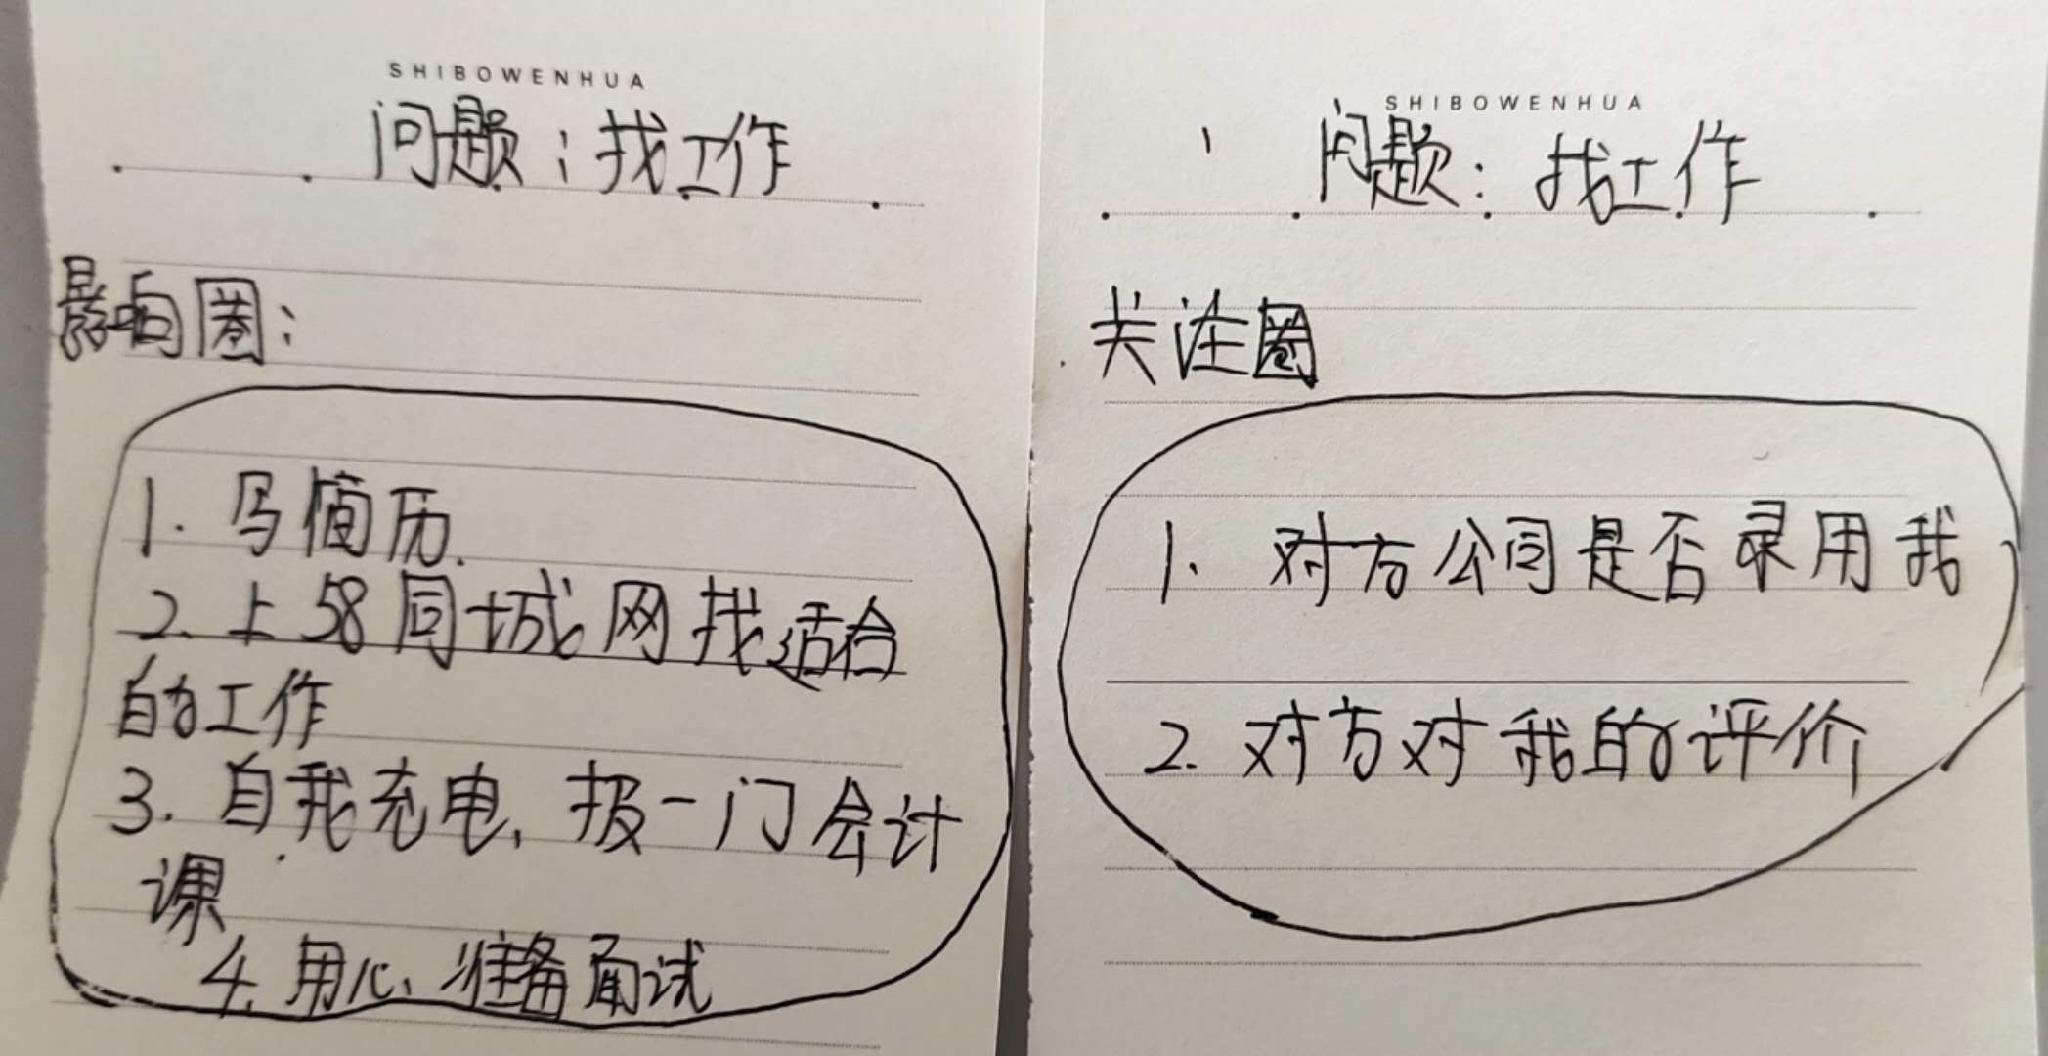 SHIBOWENHUA
问题：找工作
影响圈：
1. 写简历.
2. 上58同城网找适合
的工作
3. 自我充电, 报一门会计
课
4. 用心准备面试
SHIBOWENHUA
问题：找工作
关注圈
1. 对方公司是否录用我
2. 对方对我的评价